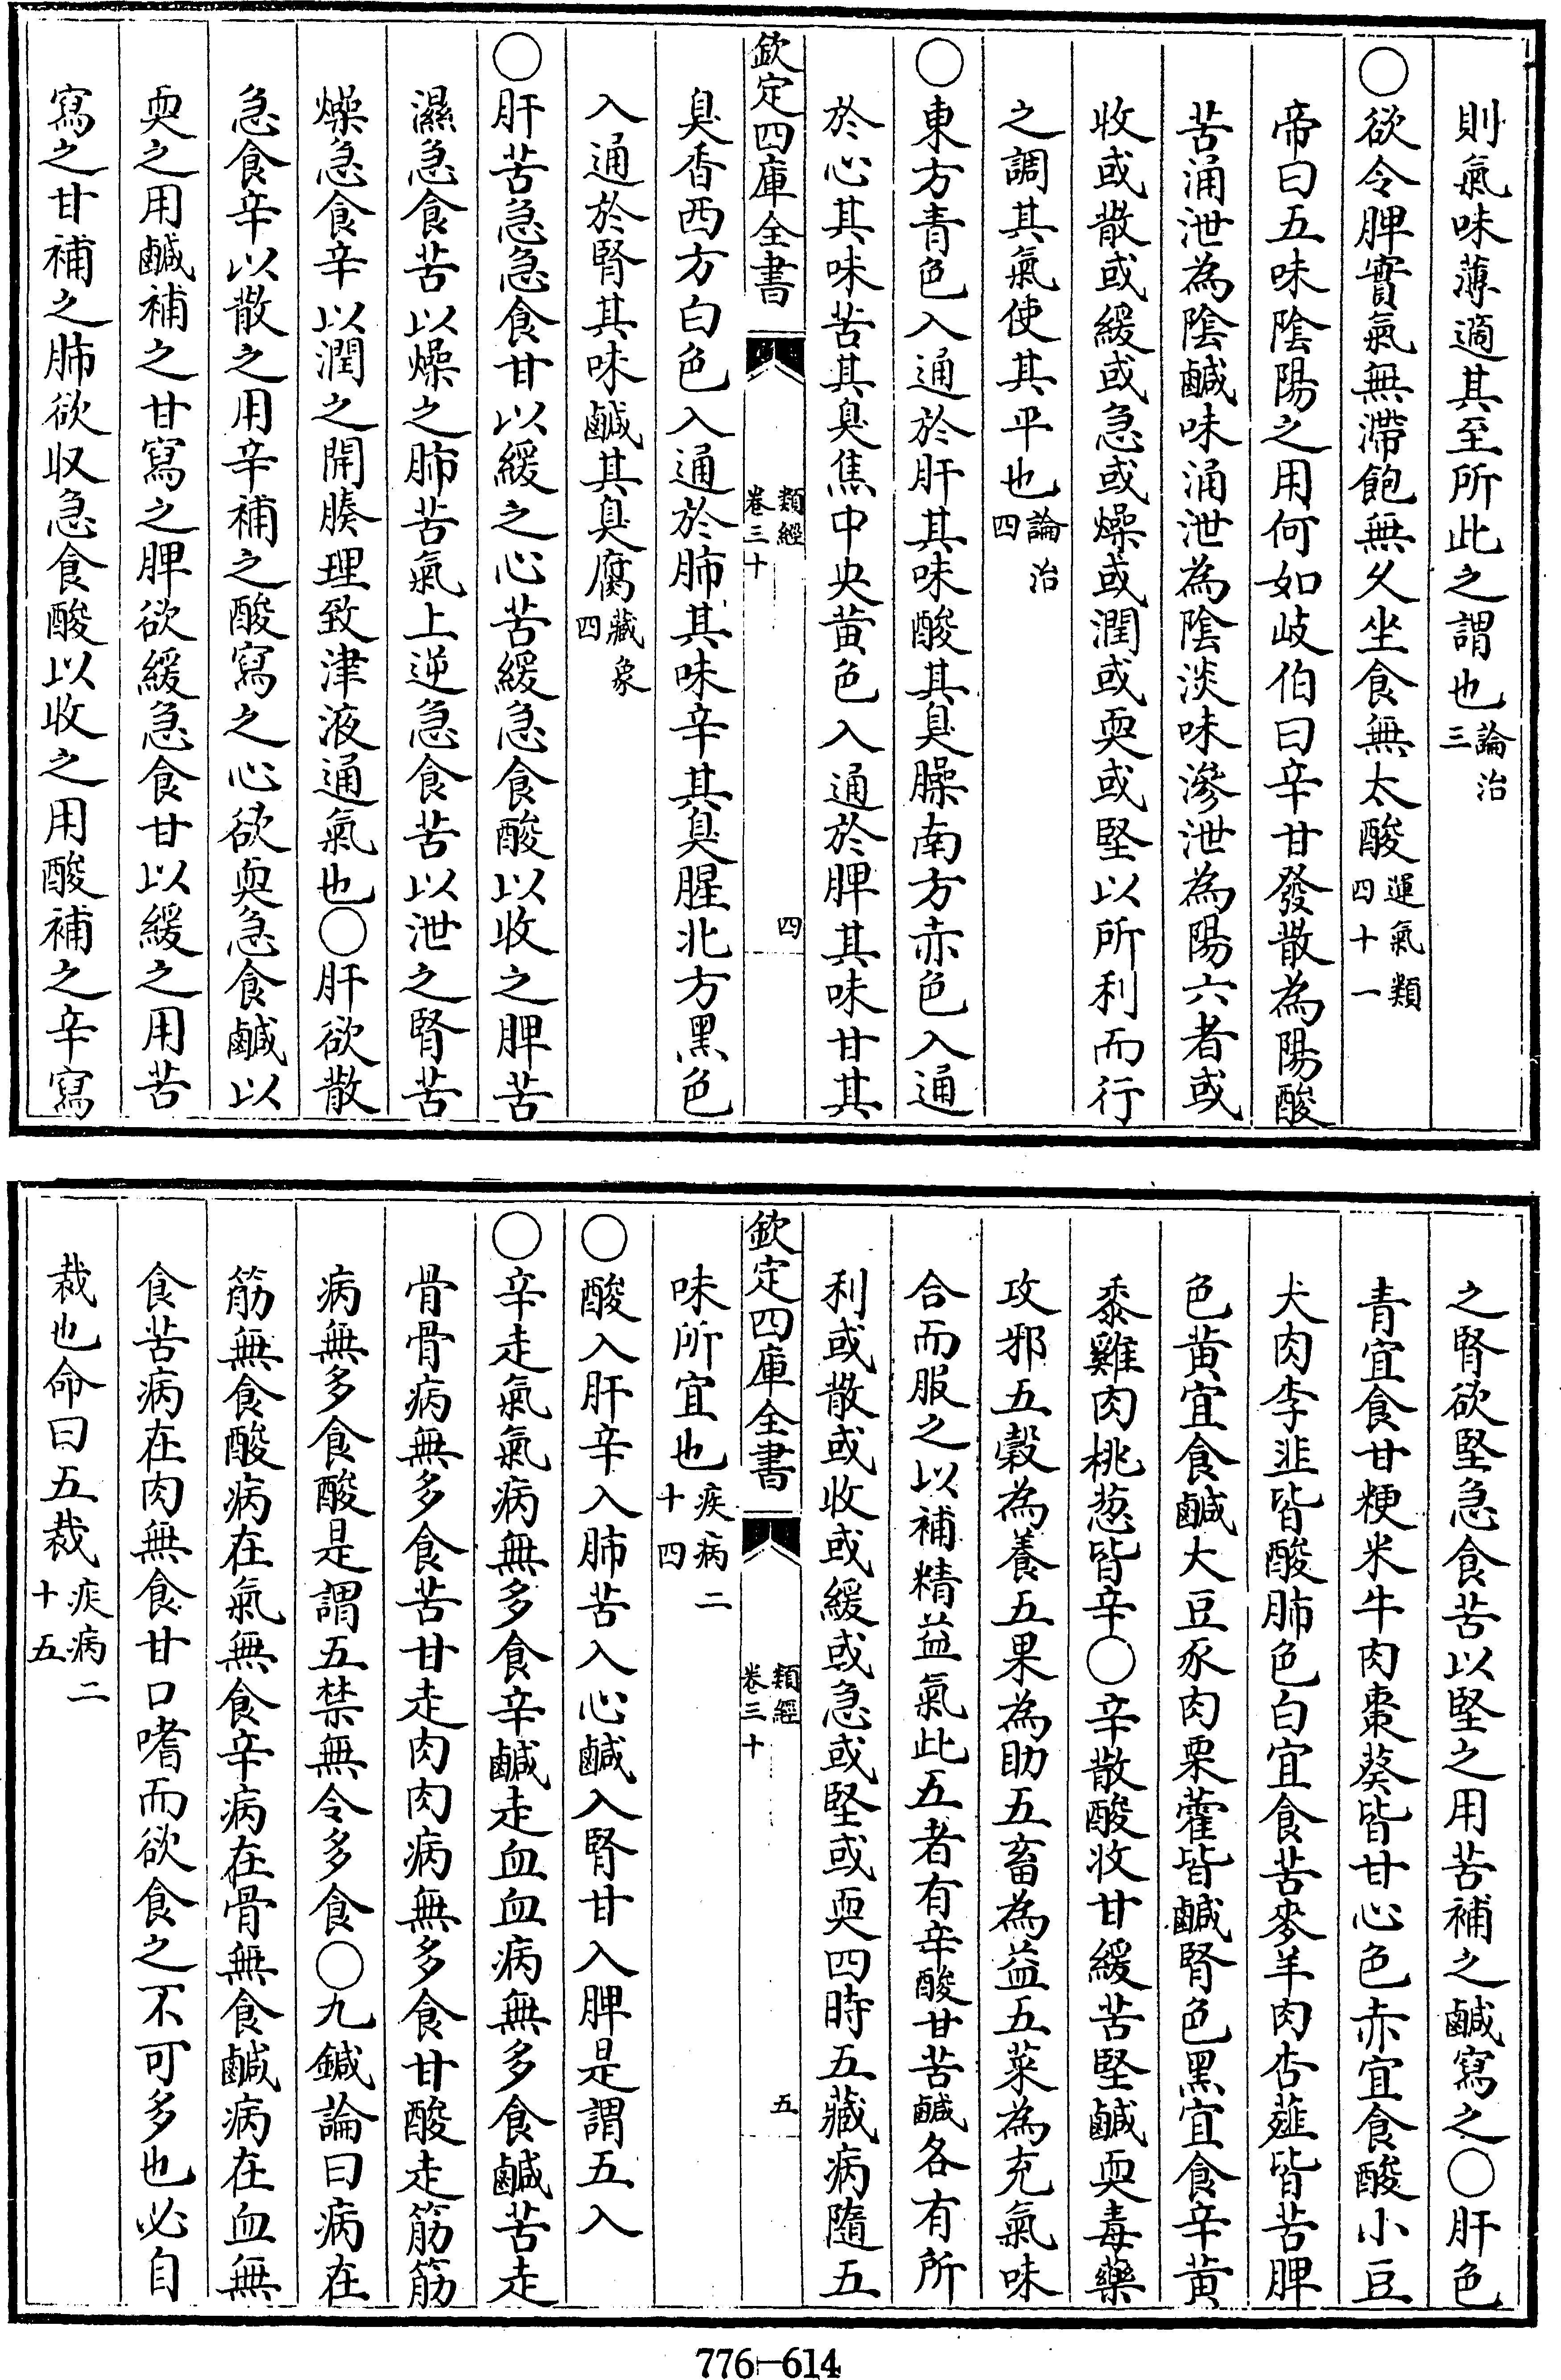 則氣味薄適其至所此之謂也論治三
○欲令脾實氣無滯飽無久坐食無太酸運氣類四十一
帝曰五味陰陽之用何如岐伯曰辛甘發散為陽酸
苦涌泄為陰鹹味涌泄為陰淡味滲泄為陽六者或
收或散或緩或急或燥或潤或耎或堅以所利而行
之調其氣使其平也論治四
○東方青色入通於肝其味酸其臭臊南方赤色入通
於心其味苦其臭焦中央黄色入通於脾其味甘其
欽定四庫全書 類經卷三十 四
臭香西方白色入通於肺其味辛其臭腥北方黑色
入通於腎其味鹹其臭腐藏象四
○肝苦急急食甘以緩之心苦緩急食酸以收之脾苦
濕急食苦以燥之肺苦氣上逆急食苦以泄之腎苦
燥急食辛以潤之開腠理致津液通氣也○肝欲散
急食辛以散之用辛補之酸寫之心欲耎急食鹹以
耎之用鹹補之甘寫之脾欲緩急食甘以緩之用苦
寫之甘補之肺欲収急食酸以收之用酸補之辛寫
之腎欲堅急食苦以堅之用苦補之鹹寫之○肝色
青宜食甘粳米牛肉棗葵皆甘心色赤宜食酸小豆
犬肉李韭皆酸肺色白宜食苦麥羊肉杏薤皆苦脾
色黄宜食鹹大豆豕肉栗藿皆鹹腎色黑宜食辛黄
黍雞肉桃葱皆辛○辛散酸收甘緩苦堅鹹耎毒藥
攻邪五穀為養五果為助五畜為益五菜為充氣味
合而服之以補精益氣此五者有辛酸甘苦鹹各有所
利或散或收或緩或急或堅或耎四時五藏病隨五
欽定四庫全書 類經卷三十 五
味所宜也疾病二十四
○酸入肝辛入肺苦入心鹹入腎甘入脾是謂五入
○辛走氣氣病無多食辛鹹走血血病無多食鹹苦走
骨骨病無多食苦甘走肉肉病無多食甘酸走筋筋
病無多食酸是謂五禁無令多食○九鍼論曰病在
筋無食酸病在氣無食辛病在骨無食鹹病在血無
食苦病在肉無食甘口嗜而欲食之不可多也必自
裁也命曰五裁疾病二十五
776-614